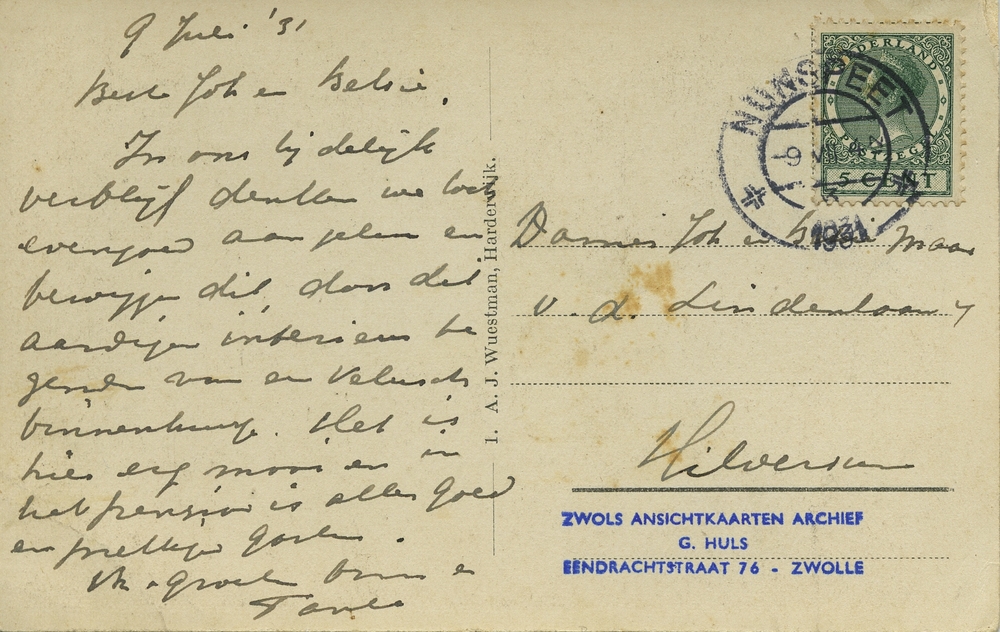 9 Juli '31
Beste Joh en Betsie,
In ons tijdelijk
verblijf denken we toch
evengoed aan jelui en
bewijzen dit, door dit
aardige interieur te
zenden van een Veluwsch
binnenhuisje. Het is
hier erg mooi en in
het pension is alles goed
en prettige gasten.
Vr. groeten
Tante
1. A. J. Wuestman, Harderwijk.
NEDERLAND
POSTZEGEL
5 CENT
NUNSPEET
9 VII
1931
Dames Joh en
v. d. Lindenlaan 4
Hilversum
ZWOLS ANSICHTKAARTEN ARCHIEF
G. HULS
EENDRACHTSTRAAT 76 - ZWOLLE